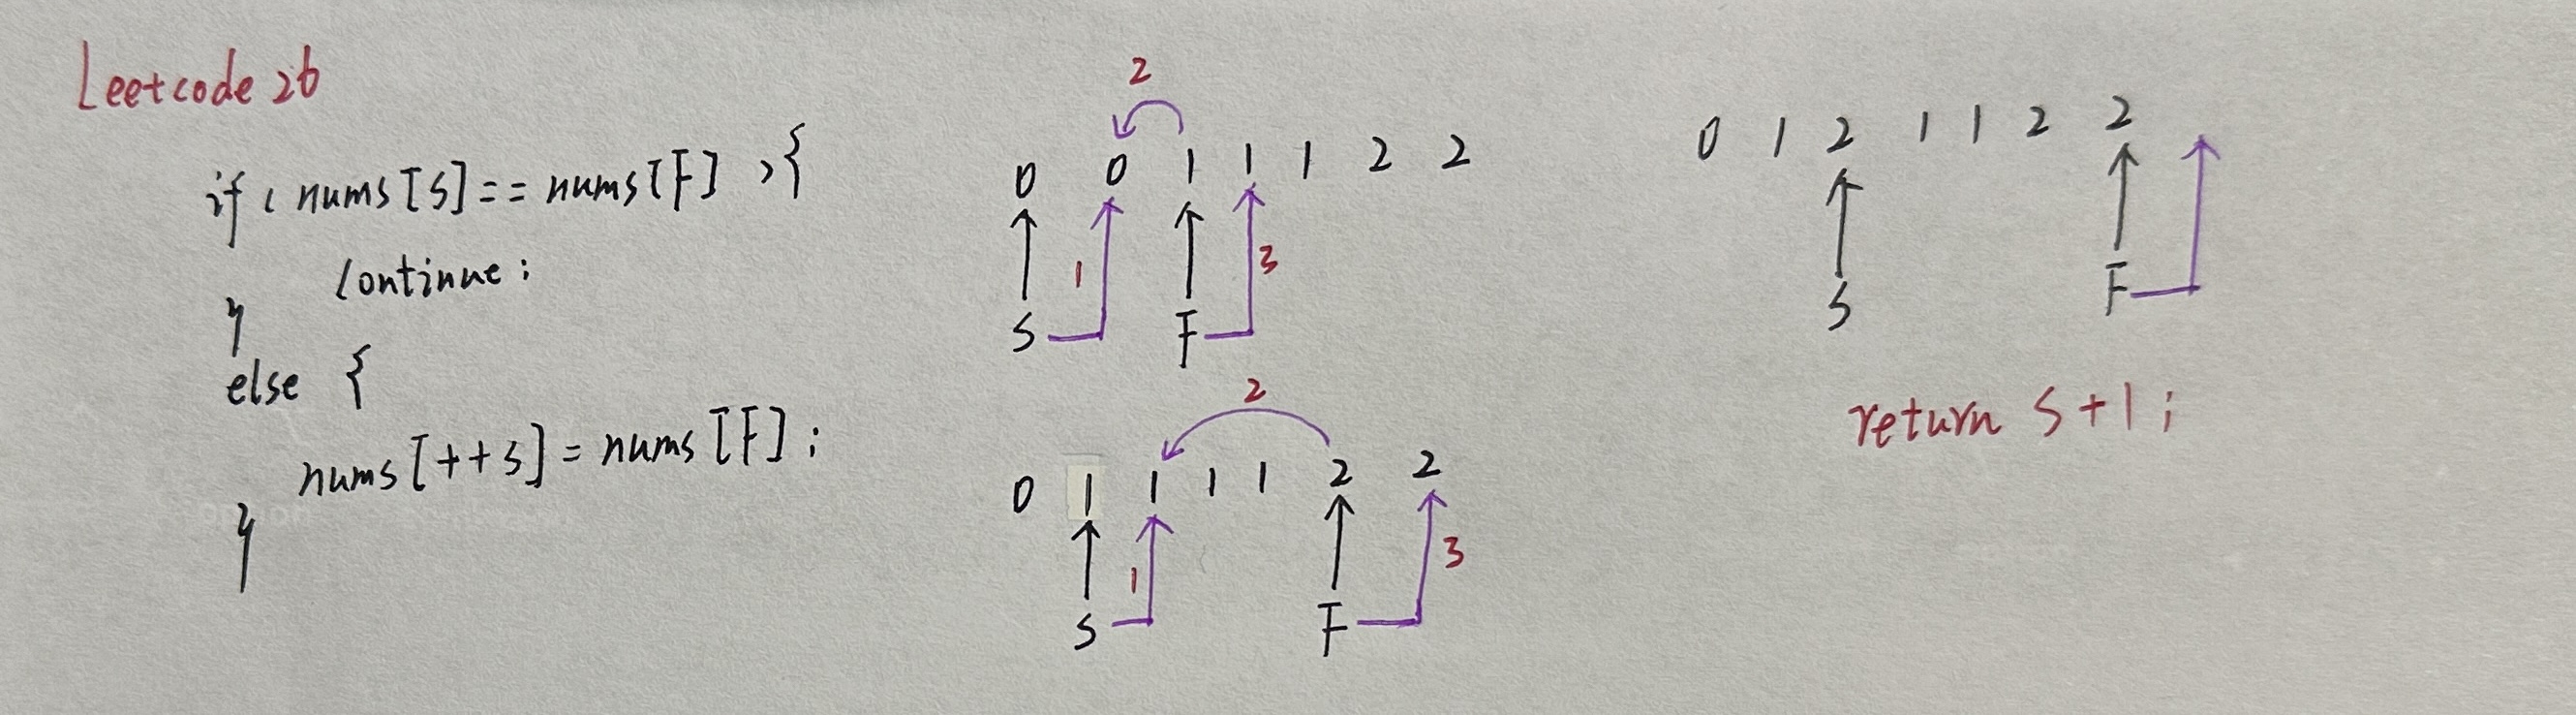 Leetcode 26
if ( nums [S] == nums [F] ) {
continue ;
}
else {
nums [++S] = nums [F] ;
}
2
0 0 1 1 1 2 2
1 3
S F
2
0 1 1 1 1 2 2
1 3
S F
0 1 2 1 1 2 2
S F
return S+1 ;